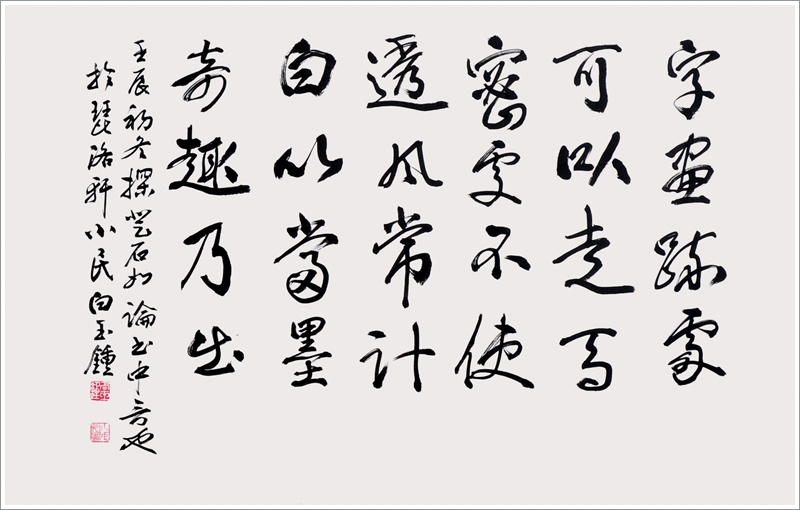 字畫疏處
可以走馬
密處不使
透風常計
白以當墨
奇趣乃出
壬辰初冬探鄧石如論书中言也
於琵洛軒小民白玉鍾